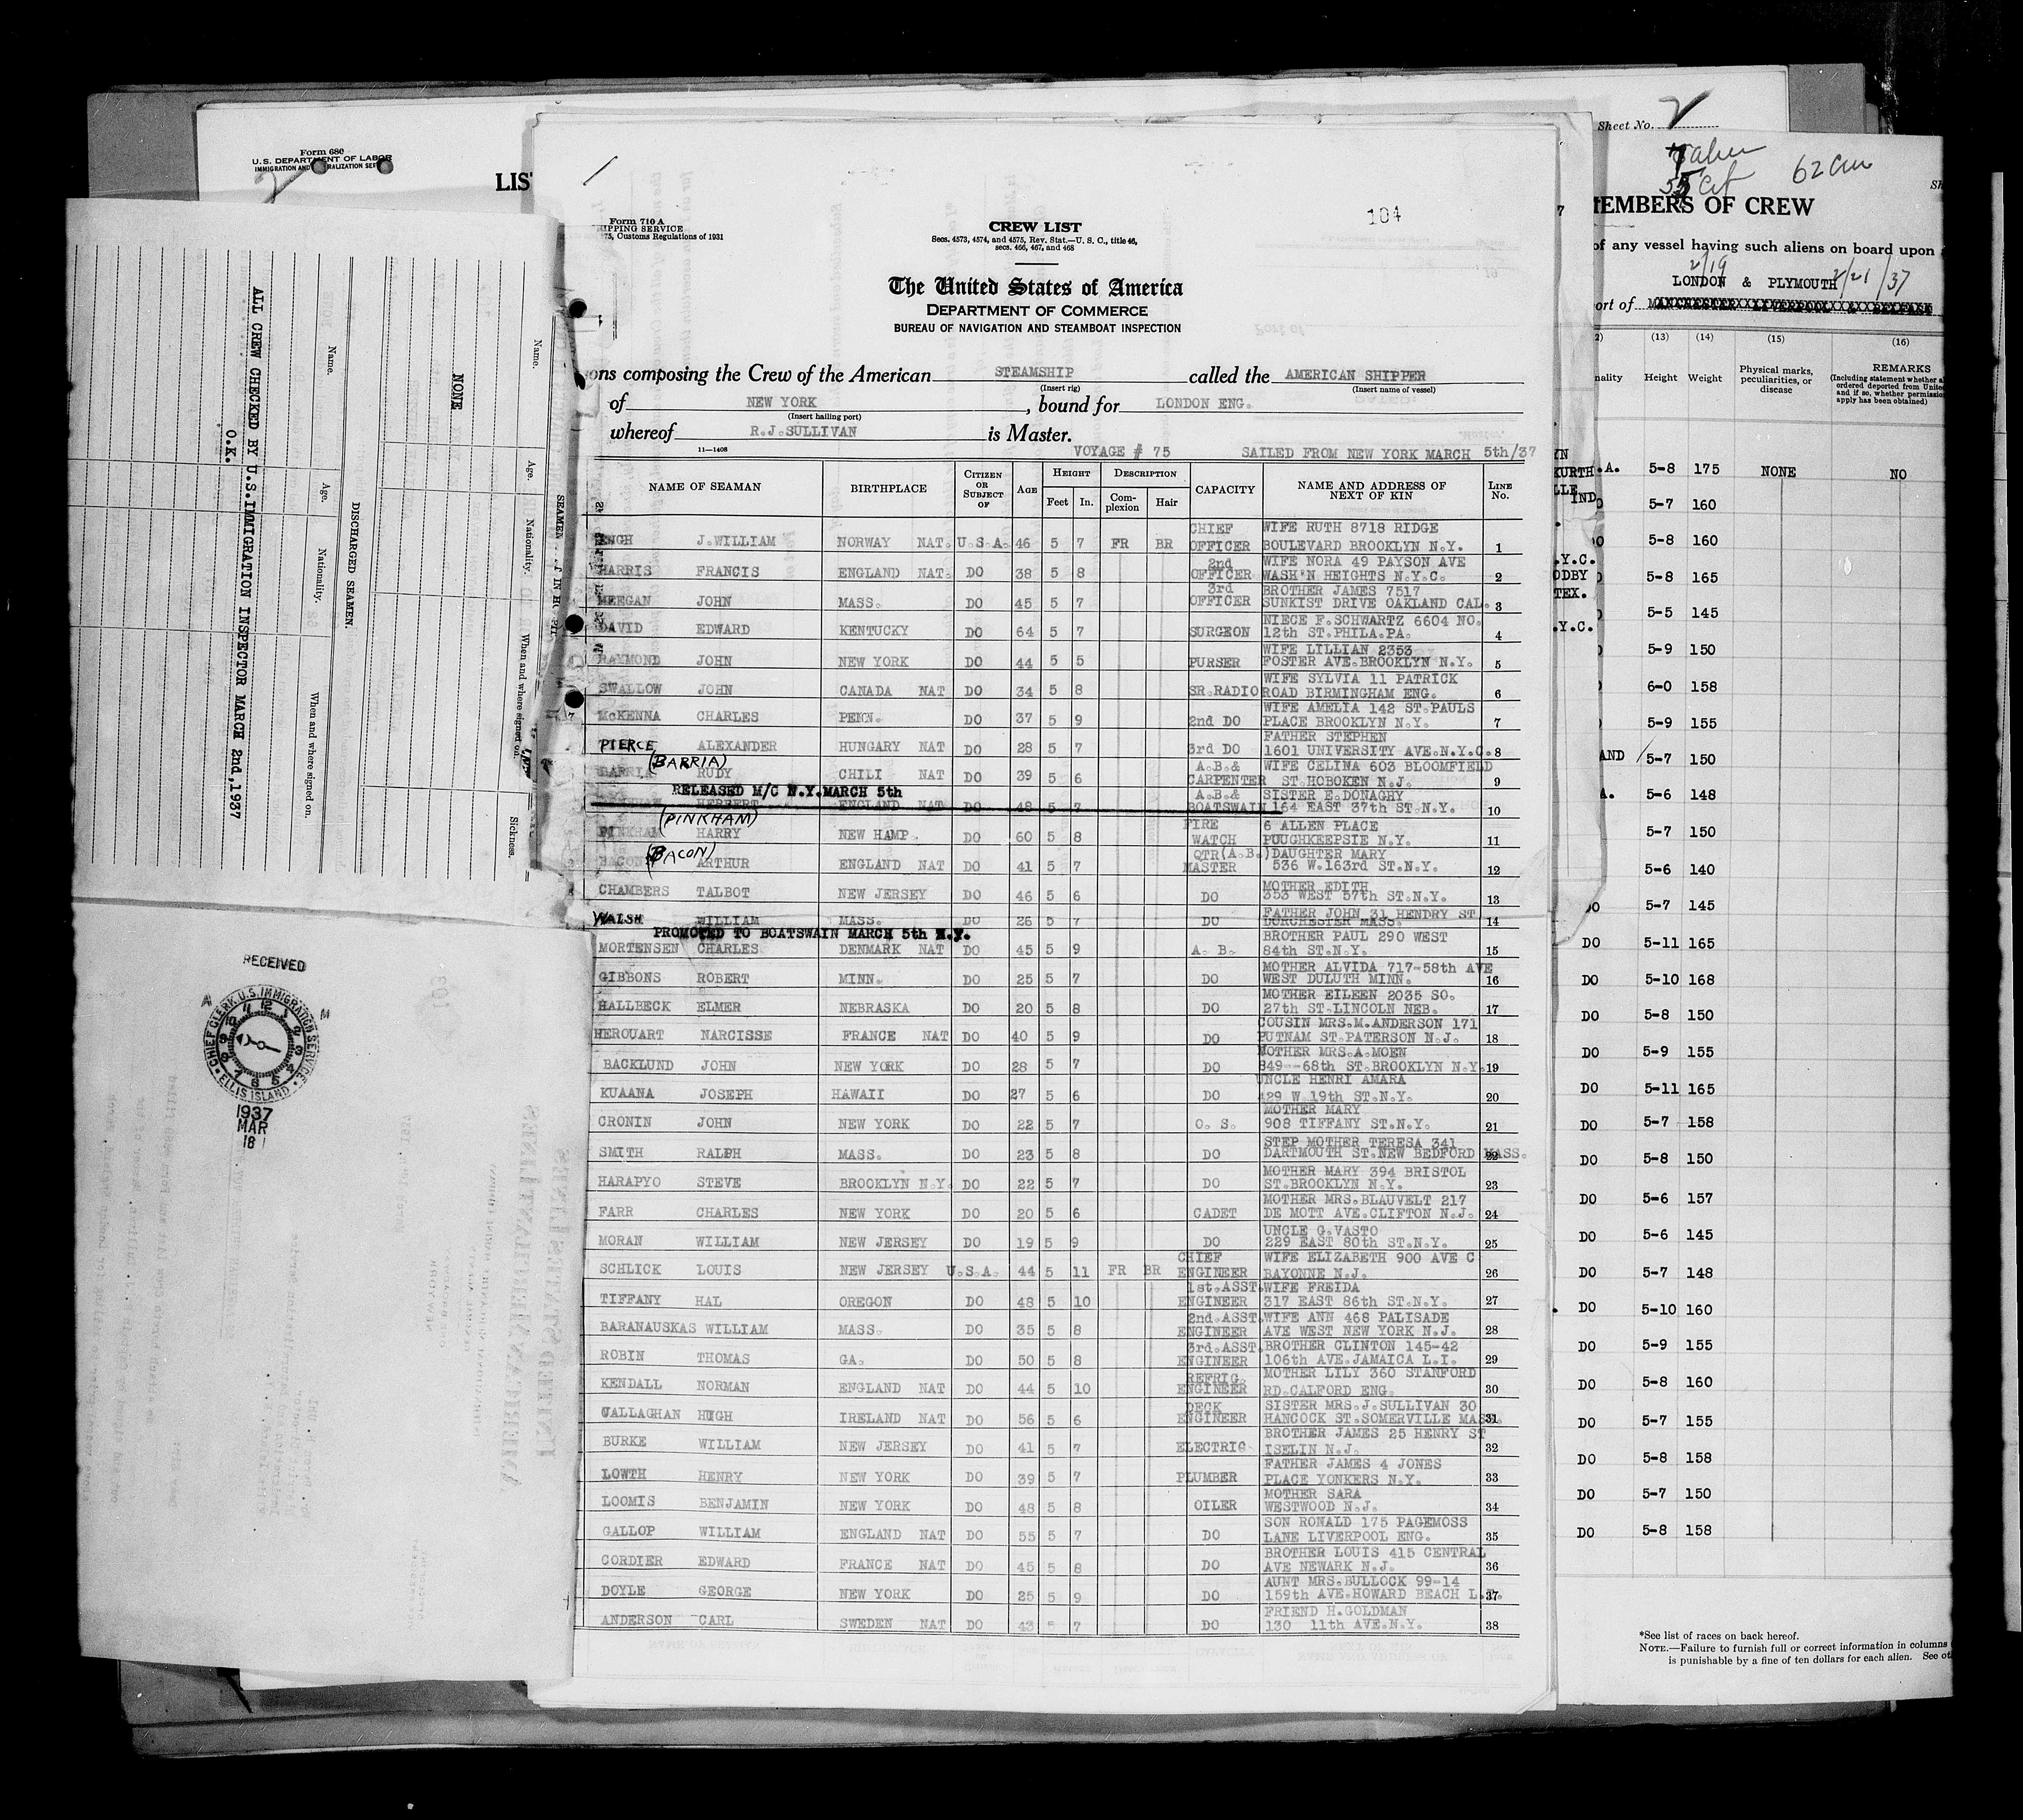 Form 680
U.S. DEPARTMENT OF LABOR
LIS
Sheet No. 2
62 cm
MEMBERS OF CREW
of any vessel having such aliens on board upon
2/19 2/21/37
LONDON & PLYMOUTH
ort of
(13) (14) (15) (16)
nality Height Weight Physical marks, peculiarities, or disease REMARKS
(Including statement whether
ordered deported from United
and if so, whether permission
apply has been obtained)
.A. 5-8 175 NONE NO
5-7 160
5-8 160
5-8 165
5-5 145
5-9 150
6-0 158
5-9 155
AND 5-7 150
A. 5-6 148
5-7 150
5-6 140
DO 5-7 145
DO 5-11 165
DO 5-10 168
DO 5-8 150
DO 5-9 155
DO 5-11 165
DO 5-7 158
DO 5-8 150
DO 5-6 157
DO 5-6 145
DO 5-7 148
DO 5-10 160
DO 5-9 155
DO 5-8 160
DO 5-7 155
DO 5-8 158
DO 5-7 150
DO 5-8 158
*See list of races on back hereof.
NOTE.—Failure to furnish full or correct information in columns
is punishable by a fine of ten dollars for each alien. See
Form 710 A
SHIPPING SERVICE
75, Customs Regulations of 1931
104
CREW LIST
Secs. 4573, 4574, and 4575, Rev. Stat.—U. S. C., title 46,
secs. 466, 467, and 468
The United States of America
DEPARTMENT OF COMMERCE
BUREAU OF NAVIGATION AND STEAMBOAT INSPECTION
ons composing the Crew of the American STEAMSHIP called the AMERICAN SHIPPER
(Insert rig) (Insert name of vessel)
of NEW YORK, bound for LONDON ENG.
(Insert hailing port)
whereof R.J.SULLIVAN is Master.
11—1408 VOYAGE # 75 SAILED FROM NEW YORK MARCH 5th/37
NAME OF SEAMAN BIRTHPLACE CITIZEN OR SUBJECT OF AGE HEIGHT Feet In. DESCRIPTION Complexion Hair CAPACITY NAME AND ADDRESS OF NEXT OF KIN LINE No.
ENGH J.WILLIAM NORWAY NAT. U.S.A. 46 5 7 FR BR CHIEF OFFICER WIFE RUTH 8718 RIDGE BOULEVARD BROOKLYN N.Y. 1
HARRIS FRANCIS ENGLAND NAT. DO 38 5 8 2nd OFFICER WIFE NORA 49 PAYSON AVE WASH'N HEIGHTS N.Y.C. 2
MEEGAN JOHN MASS. DO 45 5 7 3rd OFFICER BROTHER JAMES 7517 SUNKIST DRIVE OAKLAND CAL. 3
DAVID EDWARD KENTUCKY DO 64 5 7 SURGEON NIECE F.SCHWARTZ 6604 NO. 12th ST.PHILA.PA. 4
RAYMOND JOHN NEW YORK DO 44 5 5 PURSER WIFE LILLIAN 2353 FOSTER AVE.BROOKLYN N.Y. 5
SWALLOW JOHN CANADA NAT DO 34 5 8 SR.RADIO WIFE SYLVIA 11 PATRICK ROAD BIRMINGHAM ENG. 6
McKENNA CHARLES PENN. DO 37 5 9 2nd DO WIFE AMELIA 142 ST.PAULS PLACE BROOKLYN N.Y. 7
PIERCE ALEXANDER HUNGARY NAT DO 28 5 7 3rd DO FATHER STEPHEN 1601 UNIVERSITY AVE.N.Y.C. 8
BARRIA (BARRIA) RUDY CHILI NAT DO 39 5 6 A.B.& CARPENTER WIFE CELINA 603 BLOOMFIELD ST.HOBOKEN N.J. 9
RELEASED M/C N.Y.MARCH 5th
HERBERT ENGLAND NAT DO 48 5 7 A.B.& BOATSWAIN SISTER E.DONAGHY 164 EAST 37th ST.N.Y. 10
PINKHAM (PINKHAM) HARRY NEW HAMP. DO 60 5 8 FIRE WATCH 6 ALLEN PLACE POUGHKEEPSIE N.Y. 11
BACON (BACON) ARTHUR ENGLAND NAT DO 41 5 7 QTR(A.B.) MASTER DAUGHTER MARY 536 W.163rd ST.N.Y. 12
CHAMBERS TALBOT NEW JERSEY DO 46 5 6 DO MOTHER EDITH 353 WEST 57th ST.N.Y. 13
WALSH WILLIAM MASS. DO 26 5 7 DO FATHER JOHN 31 HENDRY ST DORCHESTER MASS. 14
PROMOTED TO BOATSWAIN MARCH 5th N.Y.
MORTENSEN CHARLES DENMARK NAT DO 45 5 9 A. B. BROTHER PAUL 290 WEST 84th ST.N.Y. 15
GIBBONS ROBERT MINN. DO 25 5 7 DO MOTHER ALVIDA 717-58th AVE WEST DULUTH MINN. 16
HALLBECK ELMER NEBRASKA DO 20 5 8 DO MOTHER EILEEN 2035 SO. 27th ST.LINCOLN NEB. 17
HEROUART NARCISSE FRANCE NAT DO 40 5 9 DO COUSIN MRS.M.ANDERSON 171 PUTNAM ST.PATERSON N.J. 18
BACKLUND JOHN NEW YORK DO 28 5 7 DO MOTHER MRS.A.MOEN 849--68th ST.BROOKLYN N.Y. 19
KUAANA JOSEPH HAWAII DO 27 5 6 DO UNCLE HENRI AMARA 429 W.19th ST.N.Y. 20
CRONIN JOHN NEW YORK DO 22 5 7 O. S. MOTHER MARY 908 TIFFANY ST.N.Y. 21
SMITH RALPH MASS. DO 23 5 8 DO STEP MOTHER TERESA 341 DARTMOUTH ST.NEW BEDFORD MASS. 22
HARAPYO STEVE BROOKLYN N.Y. DO 22 5 7 DO MOTHER MARY 394 BRISTOL ST.BROOKLYN N.Y. 23
FARR CHARLES NEW YORK DO 20 5 6 CADET MOTHER MRS.BLAUVELT 217 DE MOTT AVE.CLIFTON N.J. 24
MORAN WILLIAM NEW JERSEY DO 19 5 9 DO UNCLE G.VASTO 229 EAST 80th ST.N.Y. 25
SCHLICK LOUIS NEW JERSEY U.S.A. 44 5 11 FR BR CHIEF ENGINEER WIFE ELIZABETH 900 AVE C BAYONNE N.J. 26
TIFFANY HAL OREGON DO 48 5 10 1st.ASST. ENGINEER WIFE FREIDA 317 EAST 86th ST.N.Y. 27
BARANAUSKAS WILLIAM MASS. DO 35 5 8 2nd.ASST. ENGINEER WIFE ANN 468 PALISADE AVE WEST NEW YORK N.J. 28
ROBIN THOMAS GA. DO 50 5 8 3rd.ASST. ENGINEER BROTHER CLINTON 145-42 106th AVE.JAMAICA L.I. 29
KENDALL NORMAN ENGLAND NAT DO 44 5 10 REFRIG. ENGINEER MOTHER LILY 360 STANFORD RD.CALFORD ENG. 30
CALLAGHAN HUGH IRELAND NAT DO 56 5 6 DECK ENGINEER SISTER MRS.J.SULLIVAN 30 HANCOCK ST.SOMERVILLE MASS. 31
BURKE WILLIAM NEW JERSEY DO 41 5 7 ELECTRIC BROTHER JAMES 25 HENRY ST ISELIN N.J. 32
LOWTH HENRY NEW YORK DO 39 5 7 PLUMBER FATHER JAMES 4 JONES PLACE YONKERS N.Y. 33
LOOMIS BENJAMIN NEW YORK DO 48 5 8 OILER MOTHER SARA WESTWOOD N.J. 34
GALLOP WILLIAM ENGLAND NAT DO 55 5 7 DO SON RONALD 175 PAGEMOSS LANE LIVERPOOL ENG. 35
CORDIER EDWARD FRANCE NAT DO 45 5 8 DO BROTHER LOUIS 415 CENTRAL AVE NEWARK N.J. 36
DOYLE GEORGE NEW YORK DO 25 5 9 DO AUNT MRS.BULLOCK 99-14 159th AVE.HOWARD BEACH L.I. 37
ANDERSON CARL SWEDEN NAT DO 43 5 7 DO FRIEND H.GOLDMAN 130 11th AVE.N.Y. 38
Name. Age. Nationality. When and where signed on. Sickness.
NONE
DISCHARGED SEAMEN.
Name. Age. Nationality. When and where signed on.
ALL CREW CHECKED BY U.S.IMMIGRATION INSPECTOR MARCH 2nd,1937
O.K.
RECEIVED
A M
CHIEF CLERK U.S. IMMIGRATION SERVICE
ELLIS ISLAND
1937
MAR
18